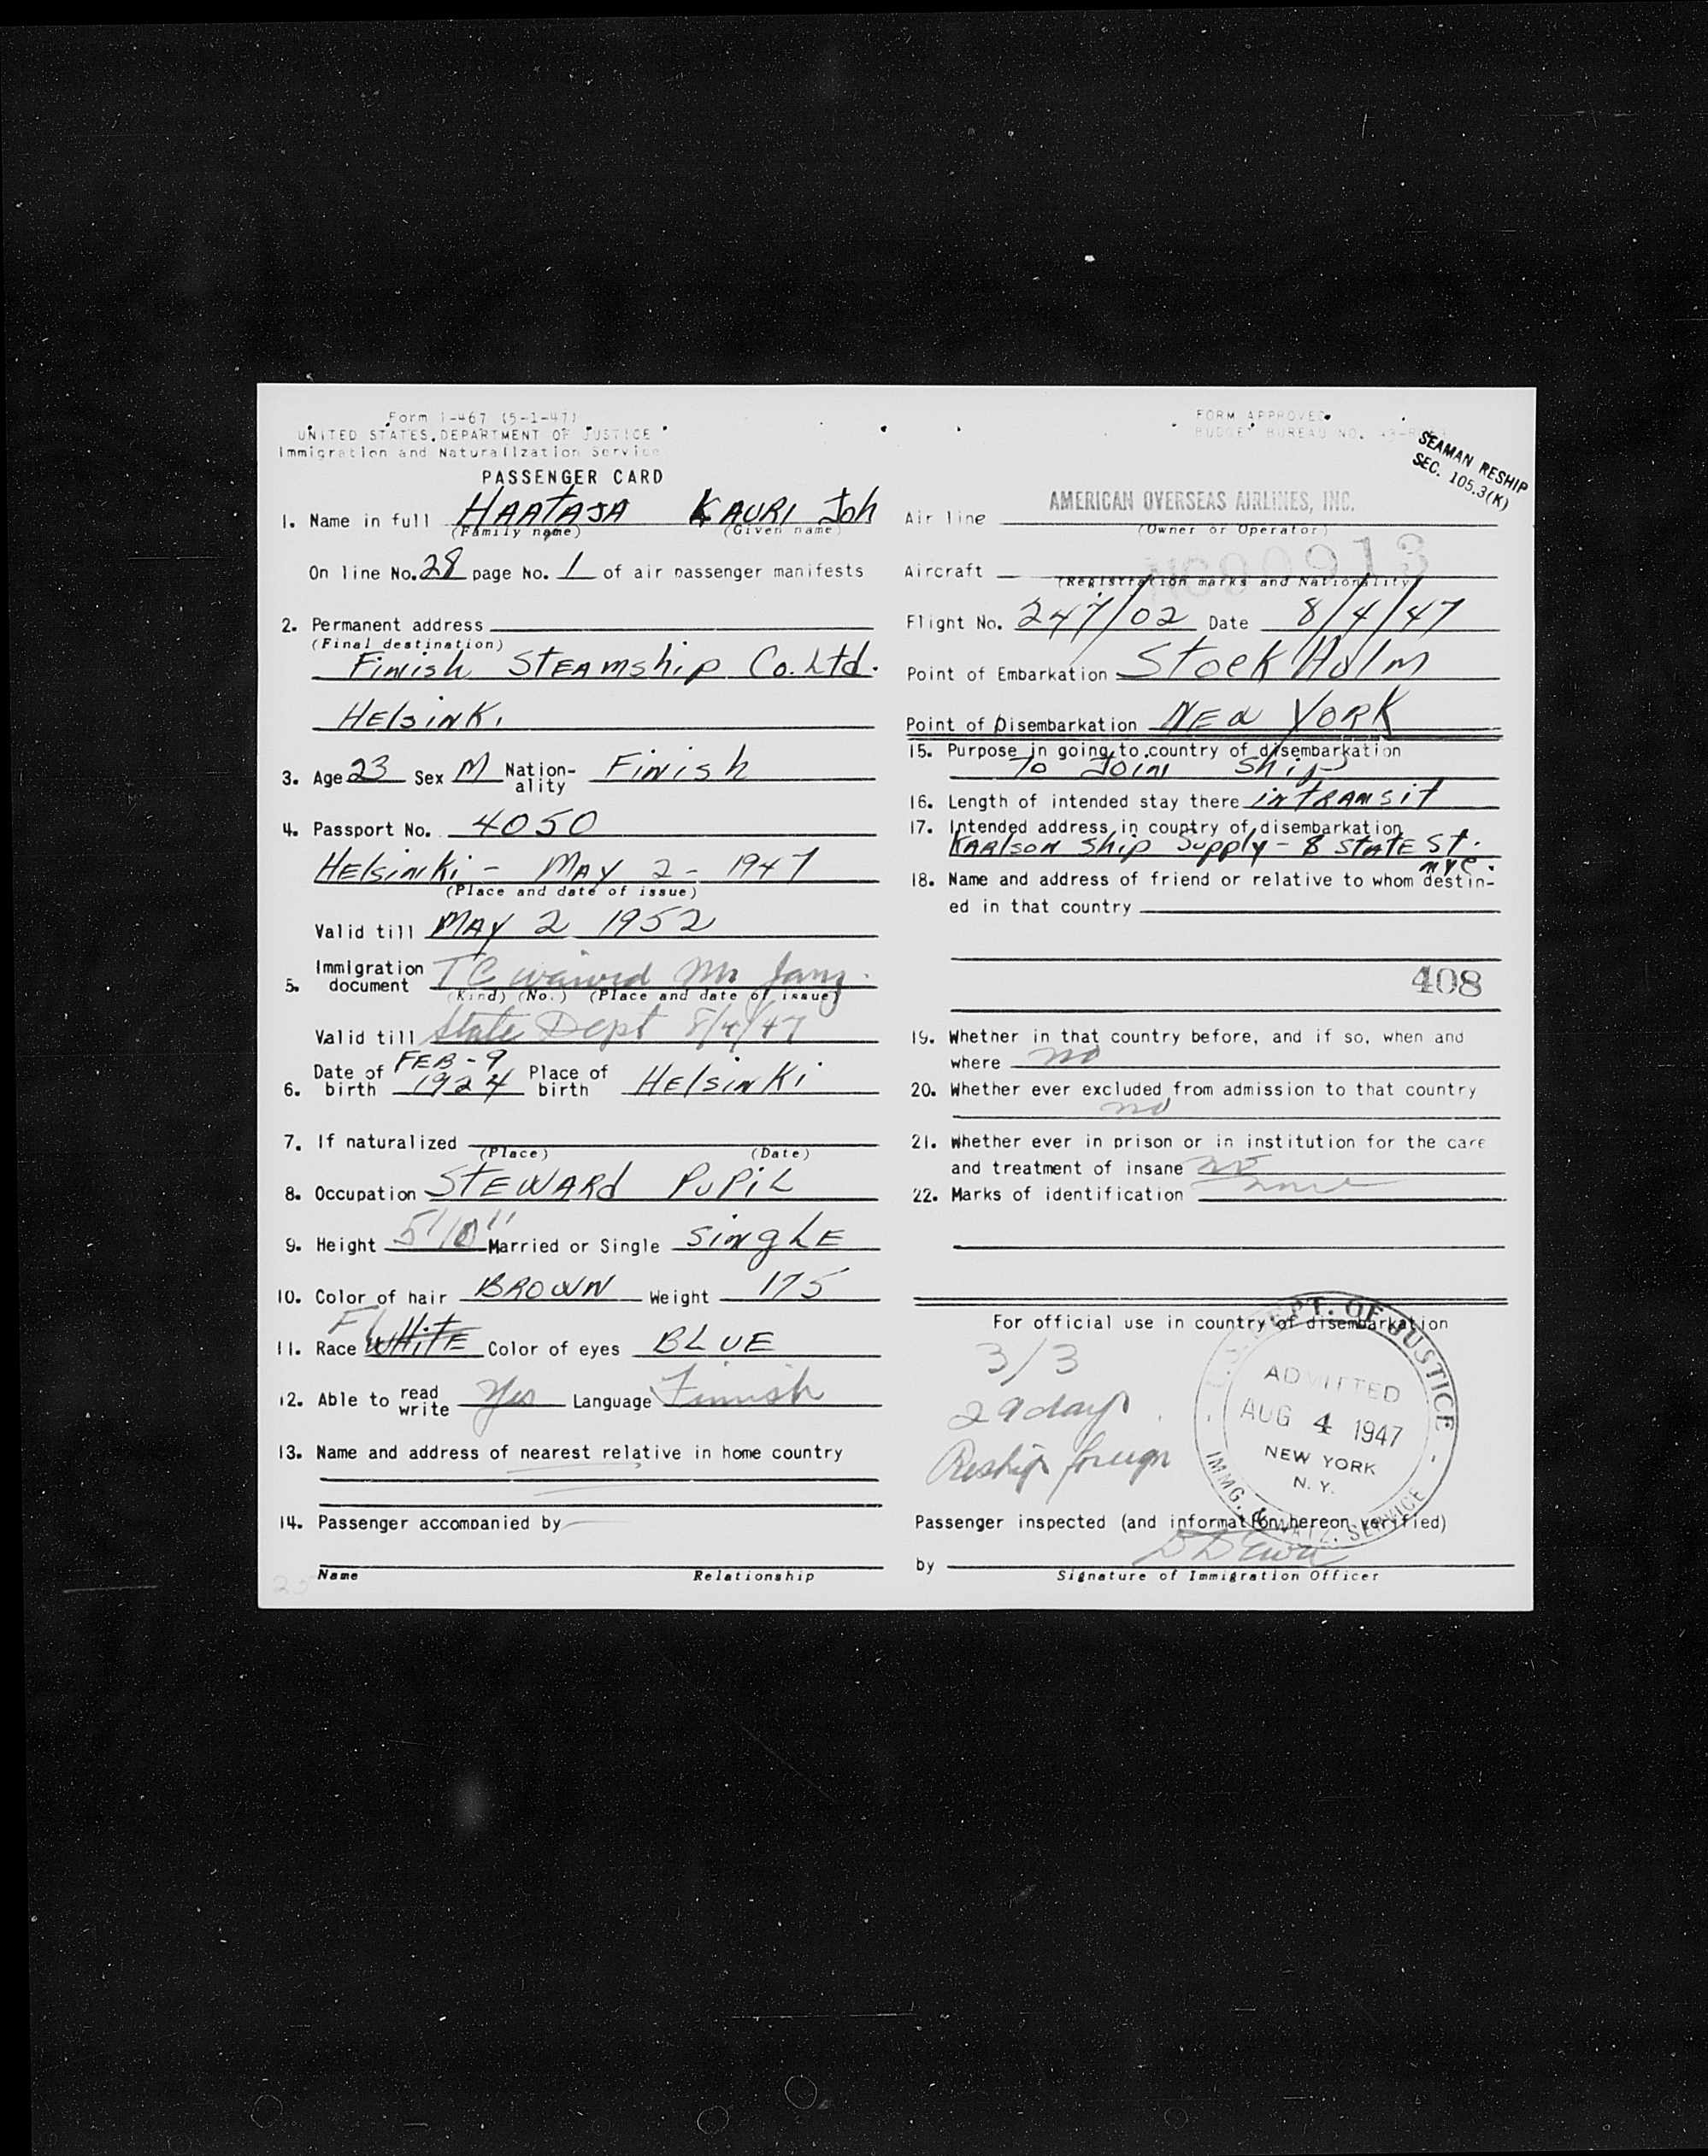 Form I-467 (5-1-47)
UNITED STATES DEPARTMENT OF JUSTICE
Immigration and Naturalization Service
PASSENGER CARD
1. Name in full HAATAJA KAURI Joh
(Family name) (Given name)
On line No. 28 page No. 1 of air passenger manifests
2. Permanent address
(Final destination)
Finish STEAmship Co. Ltd.
HElsinKi
3. Age 23 Sex M Nation-ality Finish
4. Passport No. 4050
Helsinki - MAY 2 - 1947
(Place and date of issue)
Valid till MAY 2 1952
5. Immigration document TC waived Mr
(Kind) (No.) (Place and date of issue)
Valid till State Dept 8/4/47
6. Date of birth FEB-9 1924 Place of birth HElsinKi
7. If naturalized
(Place) (Date)
8. Occupation STEWARd PUPiL
9. Height 5'10" Married or Single SingLE
10. Color of hair BROWN Weight 175
11. Race WHiTE Color of eyes BLUE
12. Able to read write Yes Language Finnish
13. Name and address of nearest relative in home country
14. Passenger accompanied by
Name Relationship
FORM APPROVED
BUDGET BUREAU NO.
SEAMAN RESHIP
SEC. 105.3(K)
Air line AMERICAN OVERSEAS AIRLINES, INC.
(Owner or Operator)
Aircraft 913
(Registration marks and Nationality)
Flight No. 247/02 Date 8/4/47
Point of Embarkation StocKHolm
Point of Disembarkation NEW YORK
15. Purpose in going to country of disembarkation
To Join Ship
16. Length of intended stay there inTRANSiT
17. Intended address in country of disembarkation
KARlson Ship Supply - 8 STATE ST.
nyc.
18. Name and address of friend or relative to whom destin-
ed in that country
408
19. Whether in that country before, and if so, when and
where no
20. Whether ever excluded from admission to that country
no
21. Whether ever in prison or in institution for the care
and treatment of insane no
22. Marks of identification none
For official use in country of disembarkation
3/3
29 days
Reship foreign
DEPT. OF JUSTICE
ADMITTED
AUG 4 1947
NEW YORK
N.Y.
IMMG. & NATZ. SERVICE
Passenger inspected (and information hereon verified)
by
Signature of Immigration Officer